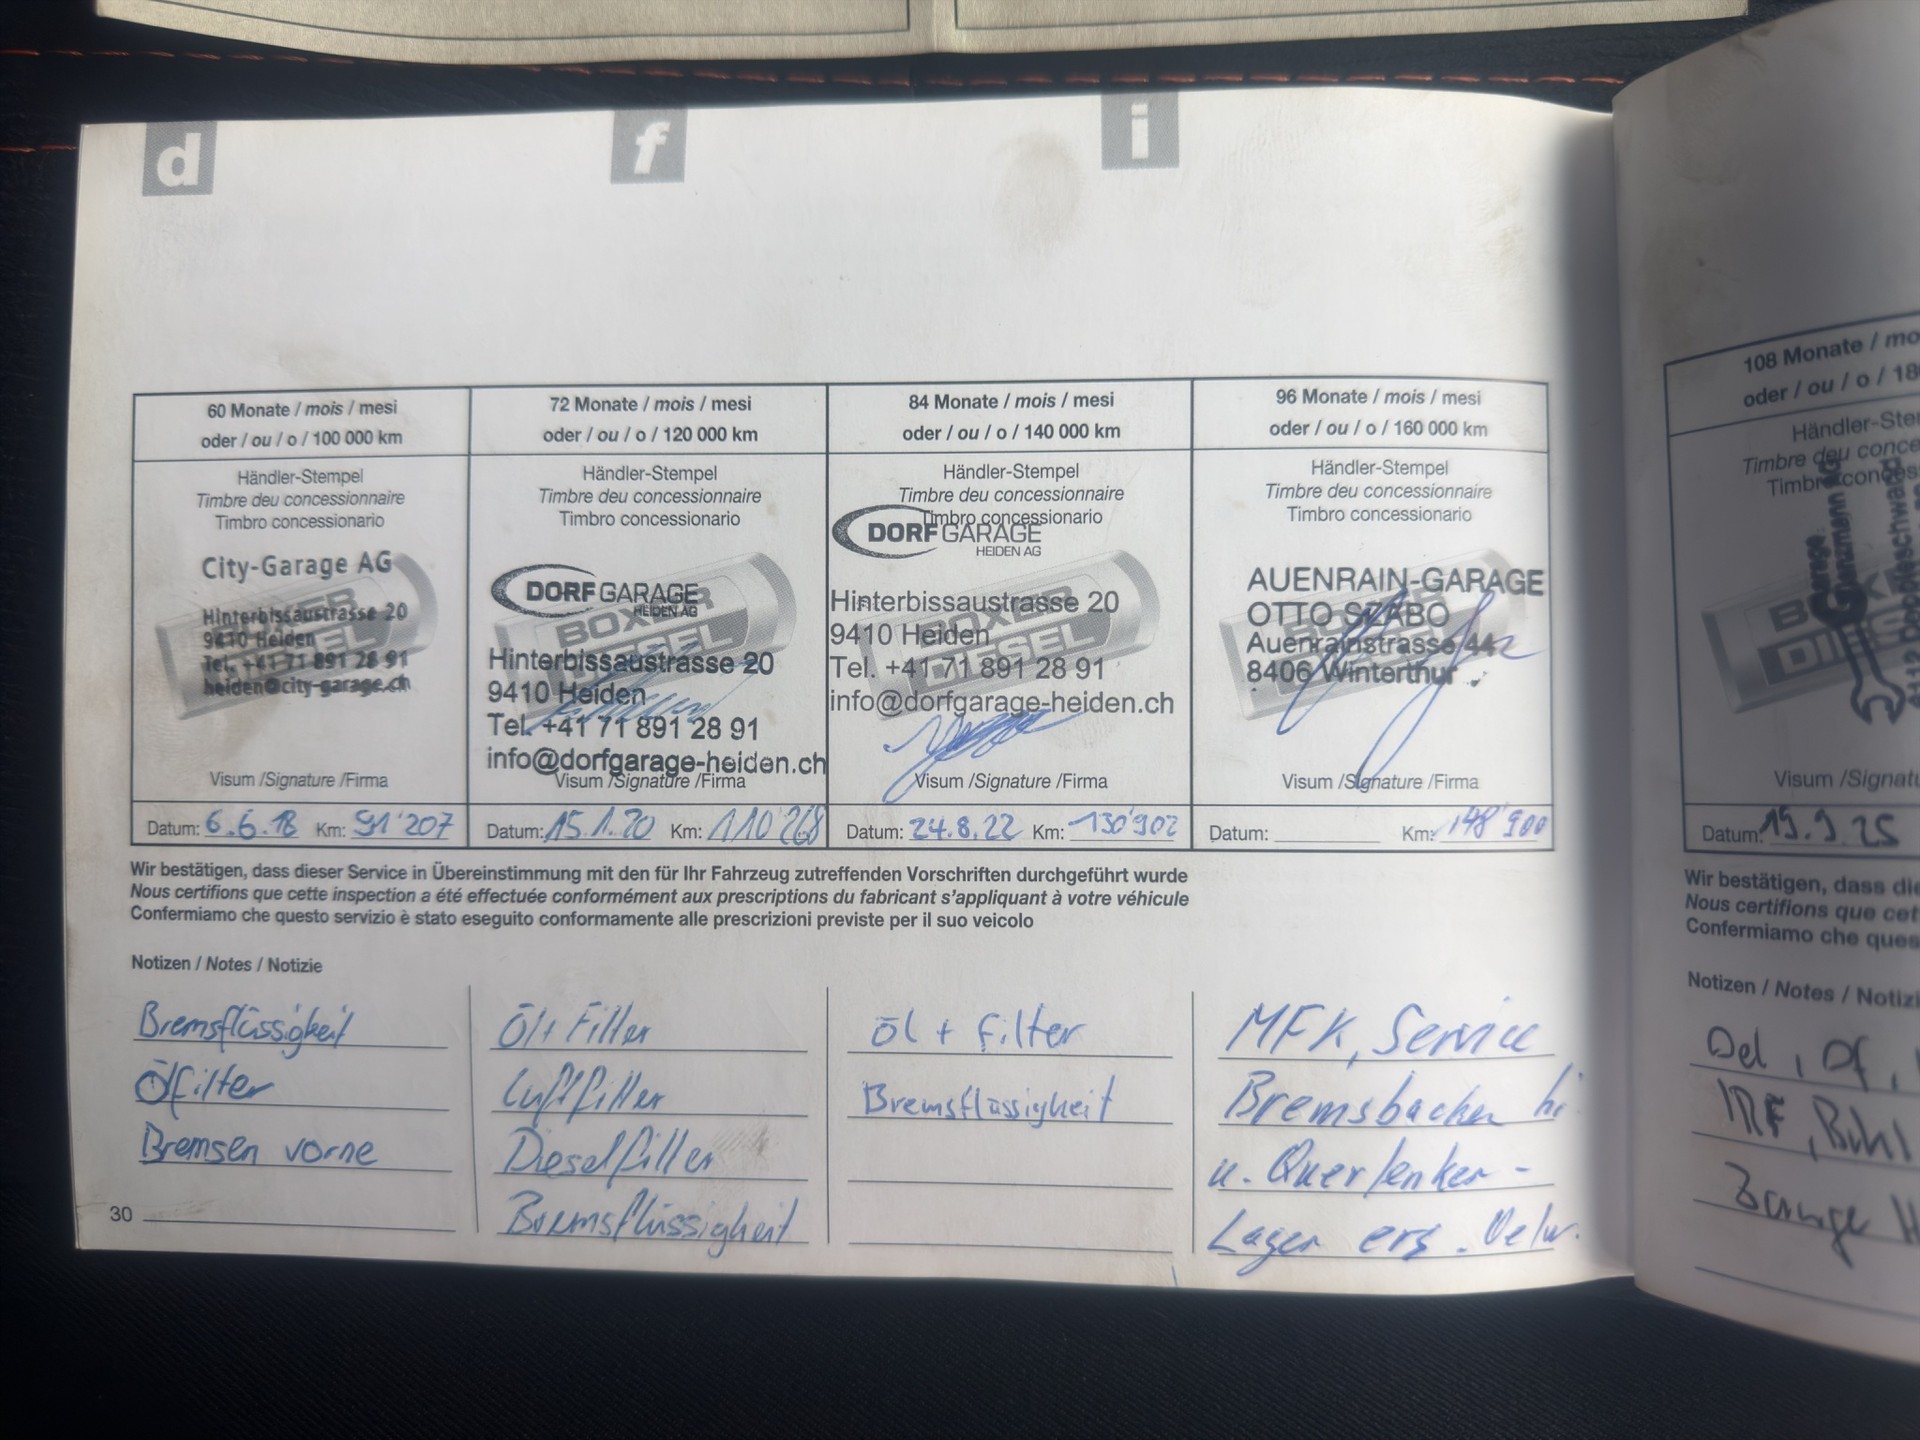 d
f
i
60 Monate / mois / mesi
oder / ou / o / 100 000 km
Händler-Stempel
Timbre deu concessionnaire
Timbro concessionario
City-Garage AG
Hinterbissaustrasse 20
9410 Heiden
Tel. +41 71 891 28 91
heiden@city-garage.ch
BOXER
DIESEL
Visum /Signature /Firma
Datum: 6.6.18 Km: 91'207
72 Monate / mois / mesi
oder / ou / o / 120 000 km
Händler-Stempel
Timbre deu concessionnaire
Timbro concessionario
DORFGARAGE
HEIDEN AG
BOXER
DIESEL
Hinterbissaustrasse 20
9410 Heiden
Tel. +41 71 891 28 91
info@dorfgarage-heiden.ch
Visum /Signature /Firma
Datum: 15.1.20 Km: 110'268
84 Monate / mois / mesi
oder / ou / o / 140 000 km
Händler-Stempel
Timbre deu concessionnaire
Timbro concessionario
DORFGARAGE
HEIDEN AG
BOXER
DIESEL
Hinterbissaustrasse 20
9410 Heiden
Tel. +41 71 891 28 91
info@dorfgarage-heiden.ch
Visum /Signature /Firma
Datum: 24.8.22 Km: 130'902
96 Monate / mois / mesi
oder / ou / o / 160 000 km
Händler-Stempel
Timbre deu concessionnaire
Timbro concessionario
AUENRAIN-GARAGE
OTTO SZABO
Auenrainstrasse 44
8406 Winterthur
Visum /Signature /Firma
Datum: Km: 148'900
Wir bestätigen, dass dieser Service in Übereinstimmung mit den für Ihr Fahrzeug zutreffenden Vorschriften durchgeführt wurde
Nous certifions que cette inspection a été effectuée conformément aux prescriptions du fabricant s'appliquant à votre véhicule
Confermiamo che questo servizio è stato eseguito conformamente alle prescrizioni previste per il suo veicolo
Notizen / Notes / Notizie
Bremsflüssigkeit
Ölfilter
Bremsen vorne
Öl + Filter
Luftfilter
Dieselfilter
Bremsflüssigkeit
Öl + Filter
Bremsflüssigkeit
MFK, Service
Bremsbacken hi
u. Querlenker-
Lager ers. Oelw.
30
108 Monate / mo
oder / ou / o / 18
Händler-Ste
Timbre deu conce
Timbro conces
Garage
BOXE
Visum /Signat
Datum: 19.9.25
Wir bestätigen, dass die
Nous certifions que cet
Confermiamo che ques
Notizen / Notes / Notizi
Oel, Of,